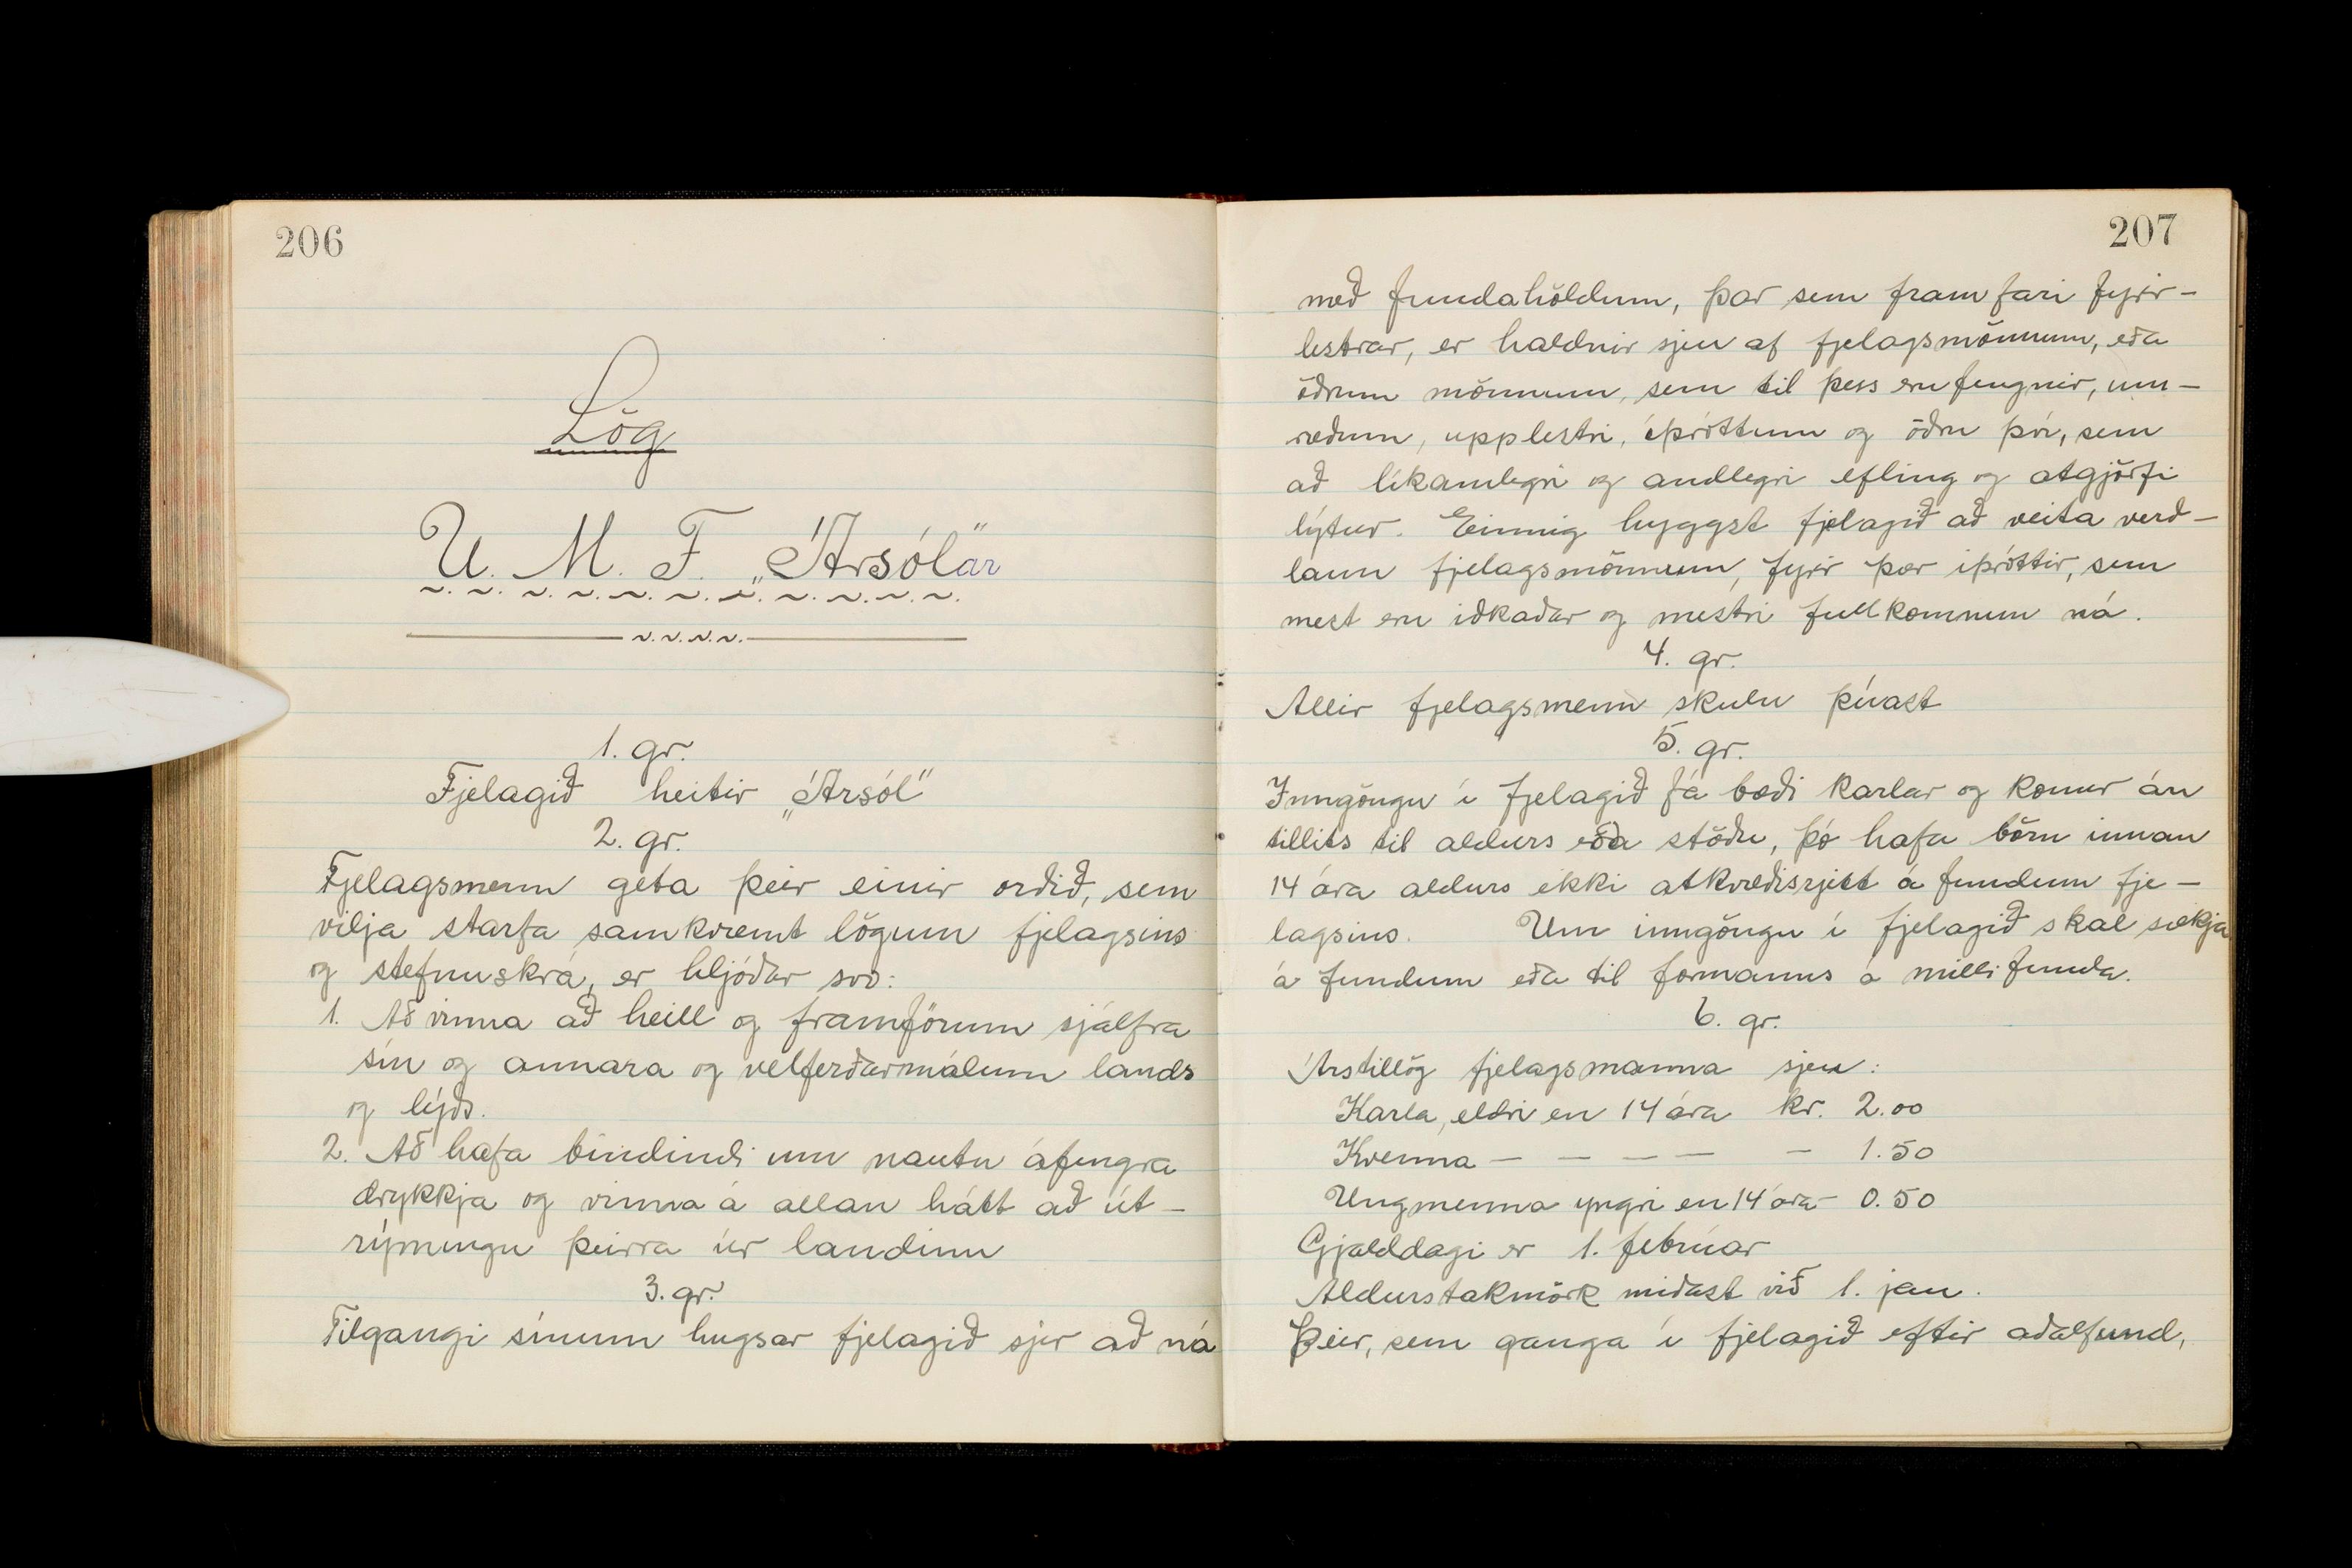 206
Lög
U. M. F. „Ársól"ar
1. gr.
Fjelagið heitir „Ársól"
2. gr.
Fjelagsmenn geta þeir einir orðið, sem
vilja starfa samkvæmt lögum fjelagsins
og stefnuskrá, er hljóðar svo:
1. Að vinna að heill og framförum sjálfra
sín og annara og velferðarmálum lands
og lýðs.
2. Að hafa bindindi um nautn áfengra
drykkja og vinna á allan hátt að út-
rýmingu þeirra úr landinu
3. gr.
Tilgangi sínum hugsar fjelagið sjer að ná
207
með fundahöldum, þar sem fram fari fyrir-
lestrar, er haldnir sjeu af fjelagsmönnum, eða
öðrum mönnum, sem til þess eru fengnir, um-
ræðum, upplestri, íþróttum og öðru því, sem
að líkamlegri og andlegri efling og atgjörfi
lýtur. Einnig hyggst fjelagið að veita verð-
laun fjelagsmönnum, fyrir þær íþróttir, sem
mest eru iðkaðar og mestri fullkomnun ná.
4. gr.
Allir fjelagsmenn skulu þúast
5. gr.
Inngöngu í fjelagið fá bæði karlar og konur án
tillits til aldurs eða stöðu, þó hafa börn innan
14 ára aldurs ekki atkvæðisrjett á fundum fje-
lagsins. Um inngöngu í fjelagið skal sækja
á fundum eða til formanns á milli funda.
6. gr.
Árstillög fjelagsmanna sjeu:
Karla, eldri en 14 ára kr. 2.00
Kvenna - - - - - 1.50
Ungmenna yngri en 14 ára - 0.50
Gjalddagi er 1. febrúar
Aldurstakmörk miðast við 1. jan.
Þeir, sem ganga í fjelagið eftir aðalfund,